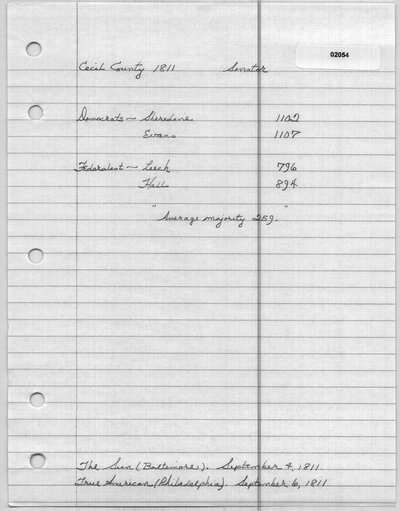 02054
Cecil County 1811 Senator
Democrats — Sheredine 1102
Evans 1107
Federalist — Leech 796
Hall 894
" Average majority 259. "
The Sun (Baltimore). September 4, 1811.
True American (Philadelphia). September 6, 1811